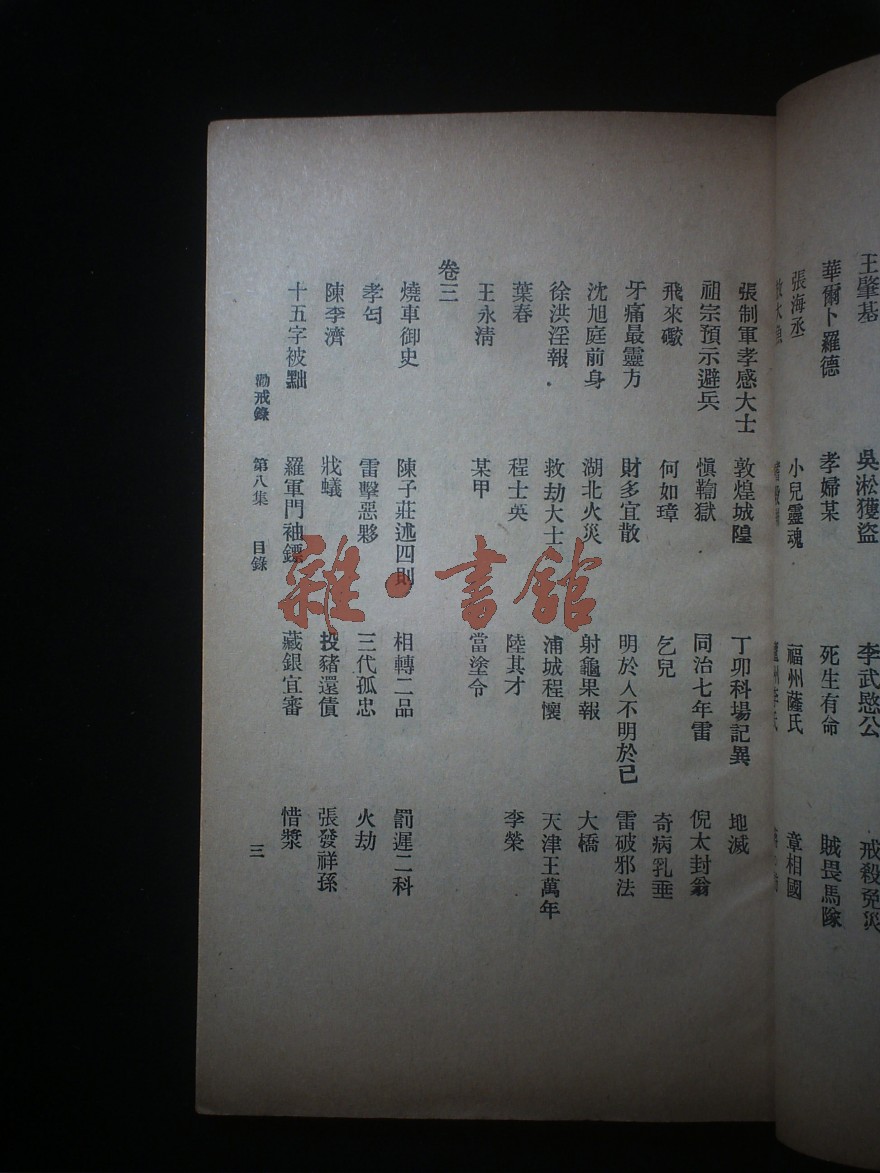 王肇基　吳淞獲盜　李武愍公　戒殺免災
華爾卜羅德　孝婦某　死生有命　賊畏馬隊
張海丞　小兒靈魂　福州薩氏　章相國
張制軍孝感大士　敦煌城隍　丁卯科場記異　地滅
祖宗預示避兵　愼鞫獄　同治七年雷　倪太封翁
飛來礮　何如璋　乞兒　奇病乳垂
牙痛最靈方　財多宜散　明於人不明於己　雷破邪法
沈旭庭前身　湖北火災　射龜果報　大橋
徐洪淫報　救劫大士　浦城程懷　天津王萬年
葉春　程士英　陸其才　李榮
王永淸　某甲　當塗令
卷三
燒車御史　陳子莊述四則　相轉二品　罰遲二科
孝匄　雷擊惡夥　三代孤忠　火劫
陳李濟　戕蟻　投豬還債　張發祥孫
十五字被黜　羅軍門袖鏢　藏銀宜審　惜漿
勸戒錄　第八集　目錄　三
雜·書館